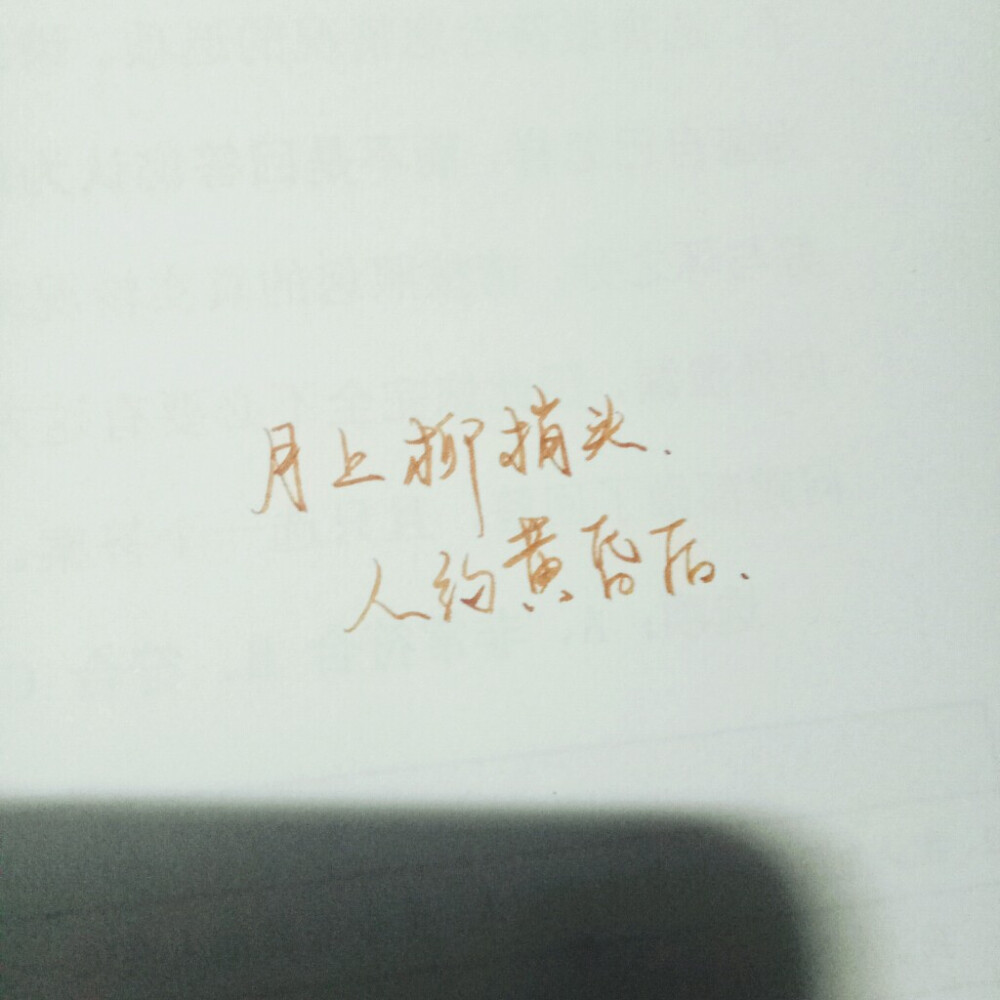 月上柳梢头.
人约黄昏后.